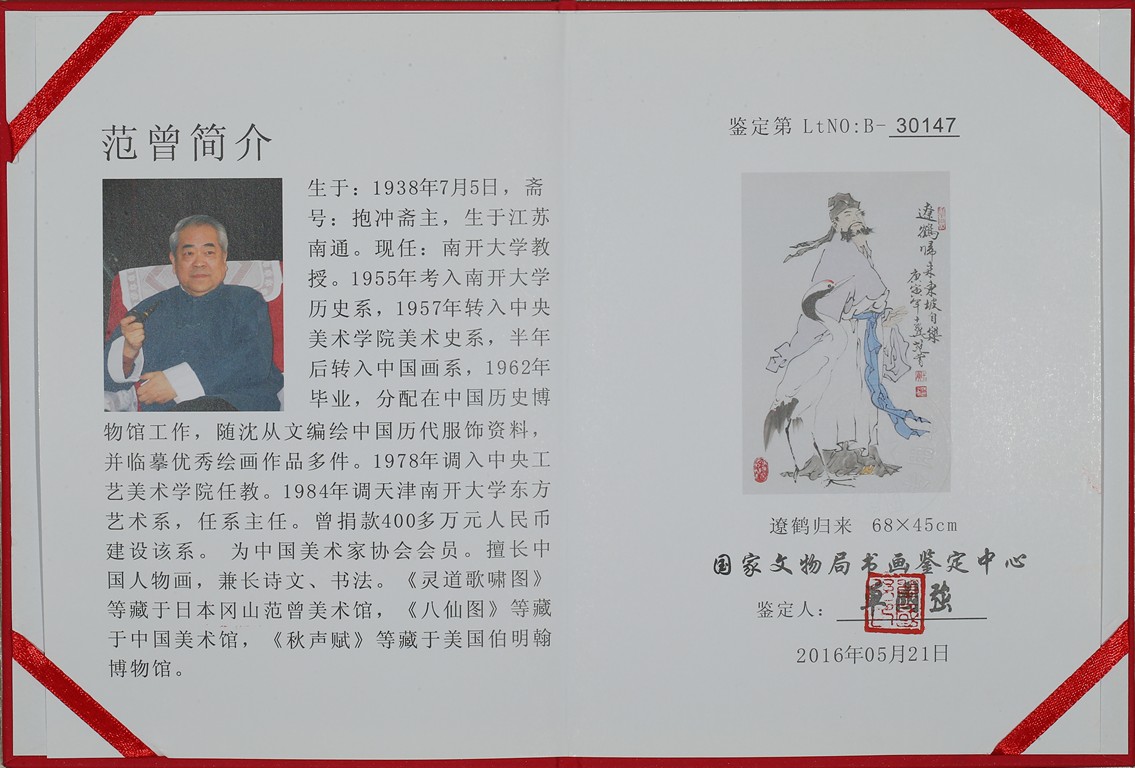 范曾简介
生于：1938年7月5日，斋
号：抱冲斋主，生于江苏
南通。现任：南开大学教
授。1955年考入南开大学
历史系，1957年转入中央
美术学院美术史系，半年
后转入中国画系，1962年
毕业，分配在中国历史博
物馆工作，随沈从文编绘中国历代服饰资料，
并临摹优秀绘画作品多件。1978年调入中央工
艺美术学院任教。1984年调天津南开大学东方
艺术系，任系主任。曾捐款400多万元人民币
建设该系。 为中国美术家协会会员。擅长中
国人物画，兼长诗文、书法。《灵道歌啸图》
等藏于日本冈山范曾美术馆，《八仙图》等藏
于中国美术馆，《秋声赋》等藏于美国伯明翰
博物馆。
鉴定第 LtNO:B- 30147
遼鶴歸来東坡自樂
庚寅年
范曾
遼鹤归来 68×45cm
国家文物局书画鉴定中心
鉴定人： 單國強
2016年05月21日